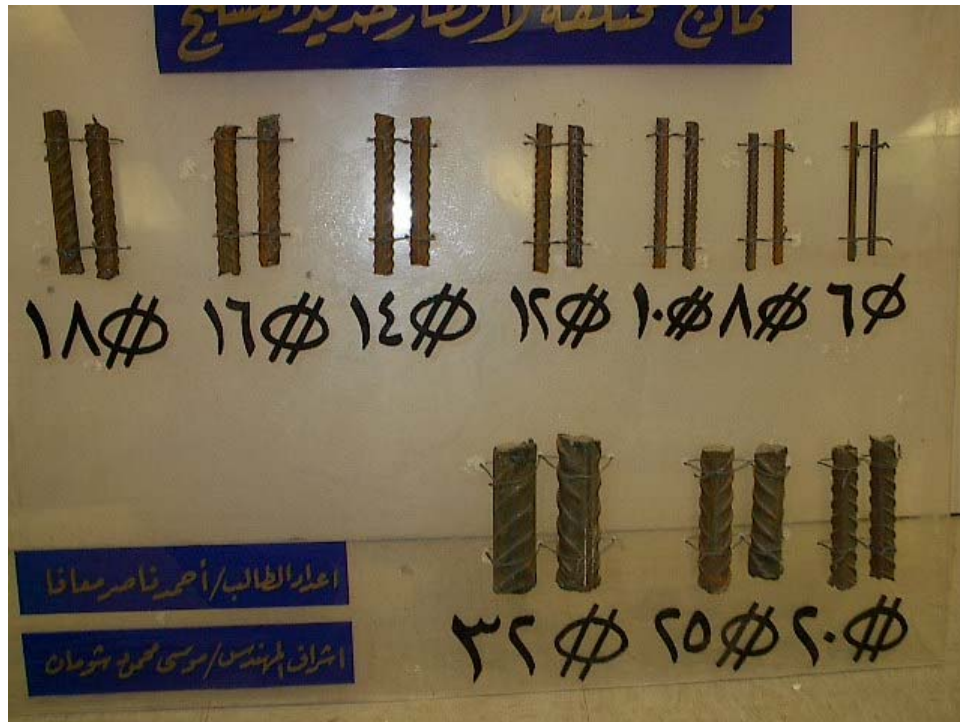 نماذج مختلفة لأقطار حديد التسليح
٦∅ ٨∅ ١٠∅ ١٢∅ ١٤∅ ١٦∅ ١٨∅
٢٠∅ ٢٥∅ ٣٢∅
اعداد الطالب/أحمد ناصر معافا
اشراف المهندس/موسى محمود شومان